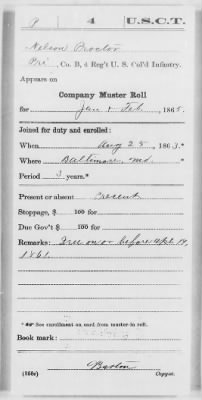 P 4 U.S.C.T.
Nelson Proctor
Pvt, Co. B, 4 Reg't U. S. Col'd Infantry.
Appears on
Company Muster Roll
for Jan & Feb, 1865.
Joined for duty and enrolled:
When Aug 28, 1863.*
Where Baltimore, Md.
Period 3 years.*
Present or absent Present
Stoppage, $ 100 for
Due Gov't $ 100 for
Remarks: Free on or before Apl. 19,
1861.
* See enrollment on card from muster-in roll.
Book mark:
Copyist.